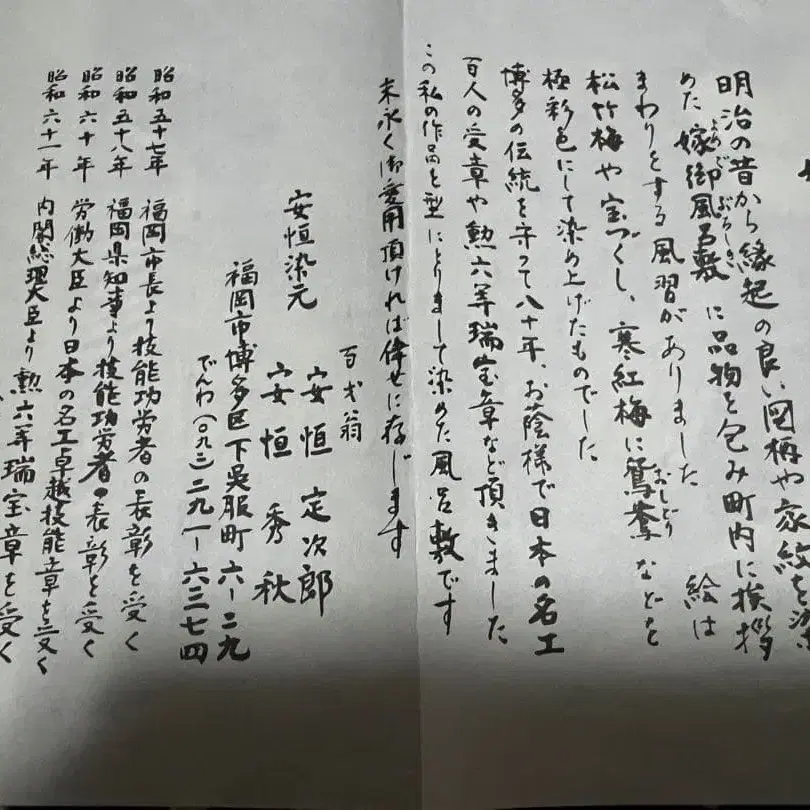 明治の昔から縁起の良い図柄や家紋を染
めた嫁御風呂敷に品物を包み町内に挨拶
よめごぶろしき
まわりをする風習がありました 絵は
松竹梅や宝づくし、寒紅梅に鴛鴦などを
おしどり
極彩色にして染め上げたものでした
博多の伝統を守って八十年、お蔭様で日本の名工
百人の受章や勲六等瑞宝章など頂きました
この私の作品を型にとりまして染めた風呂敷です
末永く御愛用頂ければ倖せに存じます
百才翁
安恒染元 安恒定次郎
安恒秀秋
福岡市博多区下呉服町六ー二九
でんわ(〇九二)二九一ー六三七四
昭和五十七年 福岡市長より技能功労者の表彰を受く
昭和五十八年 福岡県知事より技能功労者の表彰を受く
昭和六十年 労働大臣より日本の名工卓越技能章を受く
昭和六十一年 内閣総理大臣より勲六等瑞宝章を受く